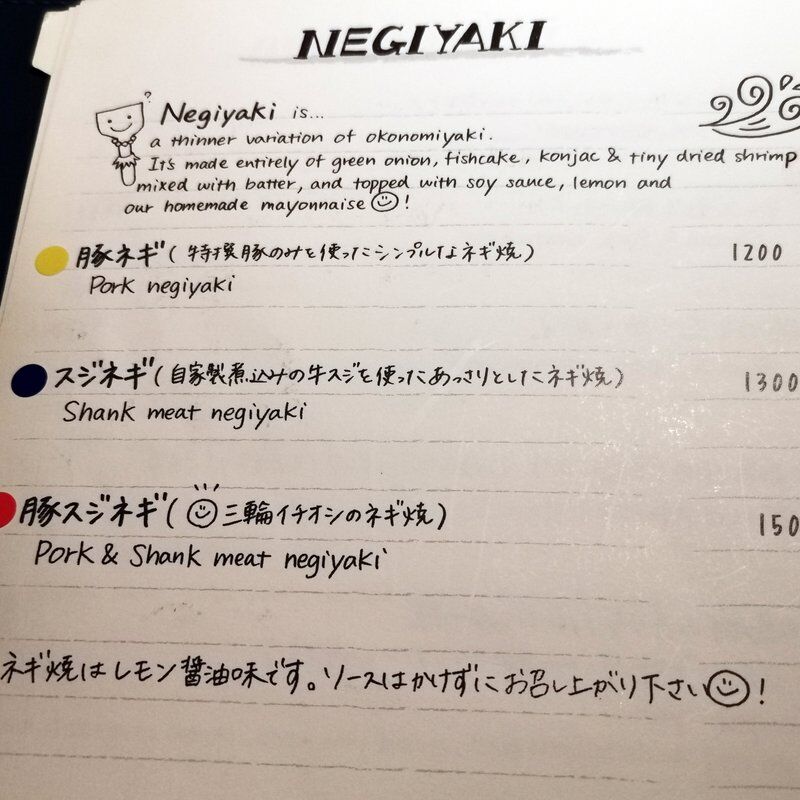 NEGIYAKI
?
Negiyaki is...
a thinner variation of okonomiyaki.
It's made entirely of green onion, fishcake, konjac & tiny dried shrimp
mixed with batter, and topped with soy sauce, lemon and
our homemade mayonnaise !
豚ネギ(特撰豚のみを使ったシンプルなネギ焼) 1200
Pork negiyaki
スジネギ(自家製煮込みの牛スジを使ったあっさりとしたネギ焼) 1300
Shank meat negiyaki
豚スジネギ(三輪イチオシのネギ焼) 150
Pork & Shank meat negiyaki
ネギ焼はレモン醤油味です。ソースはかけずにお召し上がり下さい!